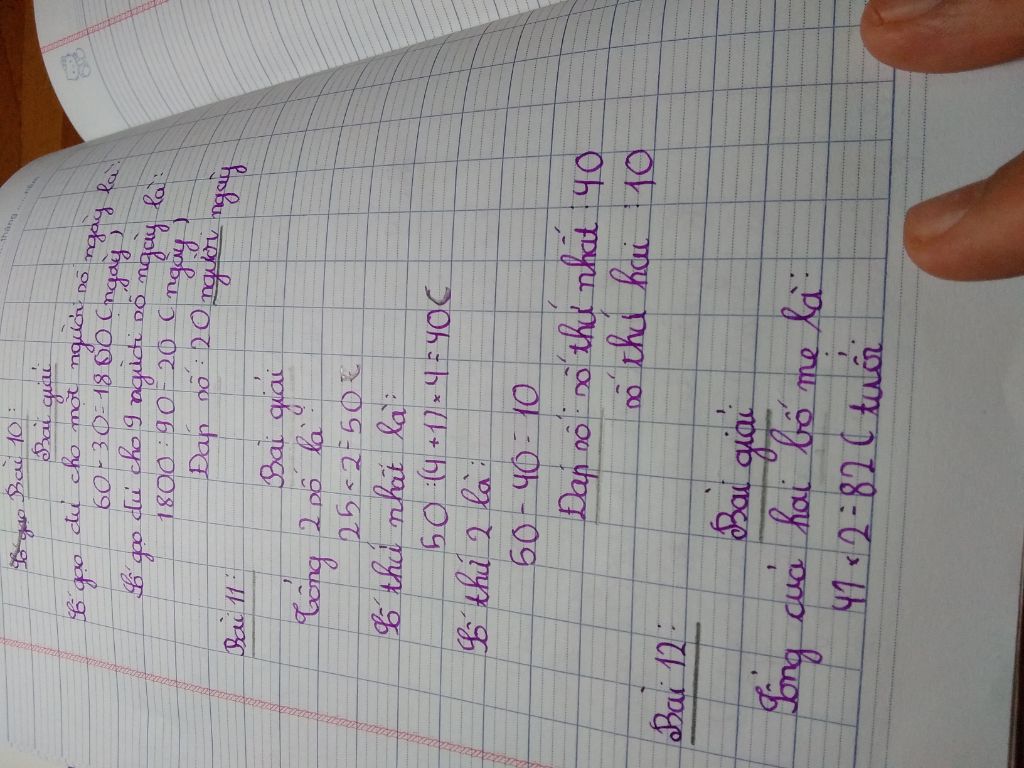 Bài 10:
Bài giải
Số gạo đủ cho một người số ngày là:
60 × 30 = 1800 (ngày)
Số gạo đủ cho 9 người số ngày là:
1800 : 90 = 20 (ngày)
Đáp số: 20 người ngày
Bài 11:
Bài giải
Tổng 2 số là:
25 × 2 = 50
Số thứ nhất là:
50 : (4 + 1) × 4 = 40 (
Số thứ 2 là:
50 - 40 = 10
Đáp số: số thứ nhất : 40
số thứ hai : 10
Bài 12:
Bài giải
Tổng của hai bố mẹ là:
41 × 2 = 82 ( tuổi